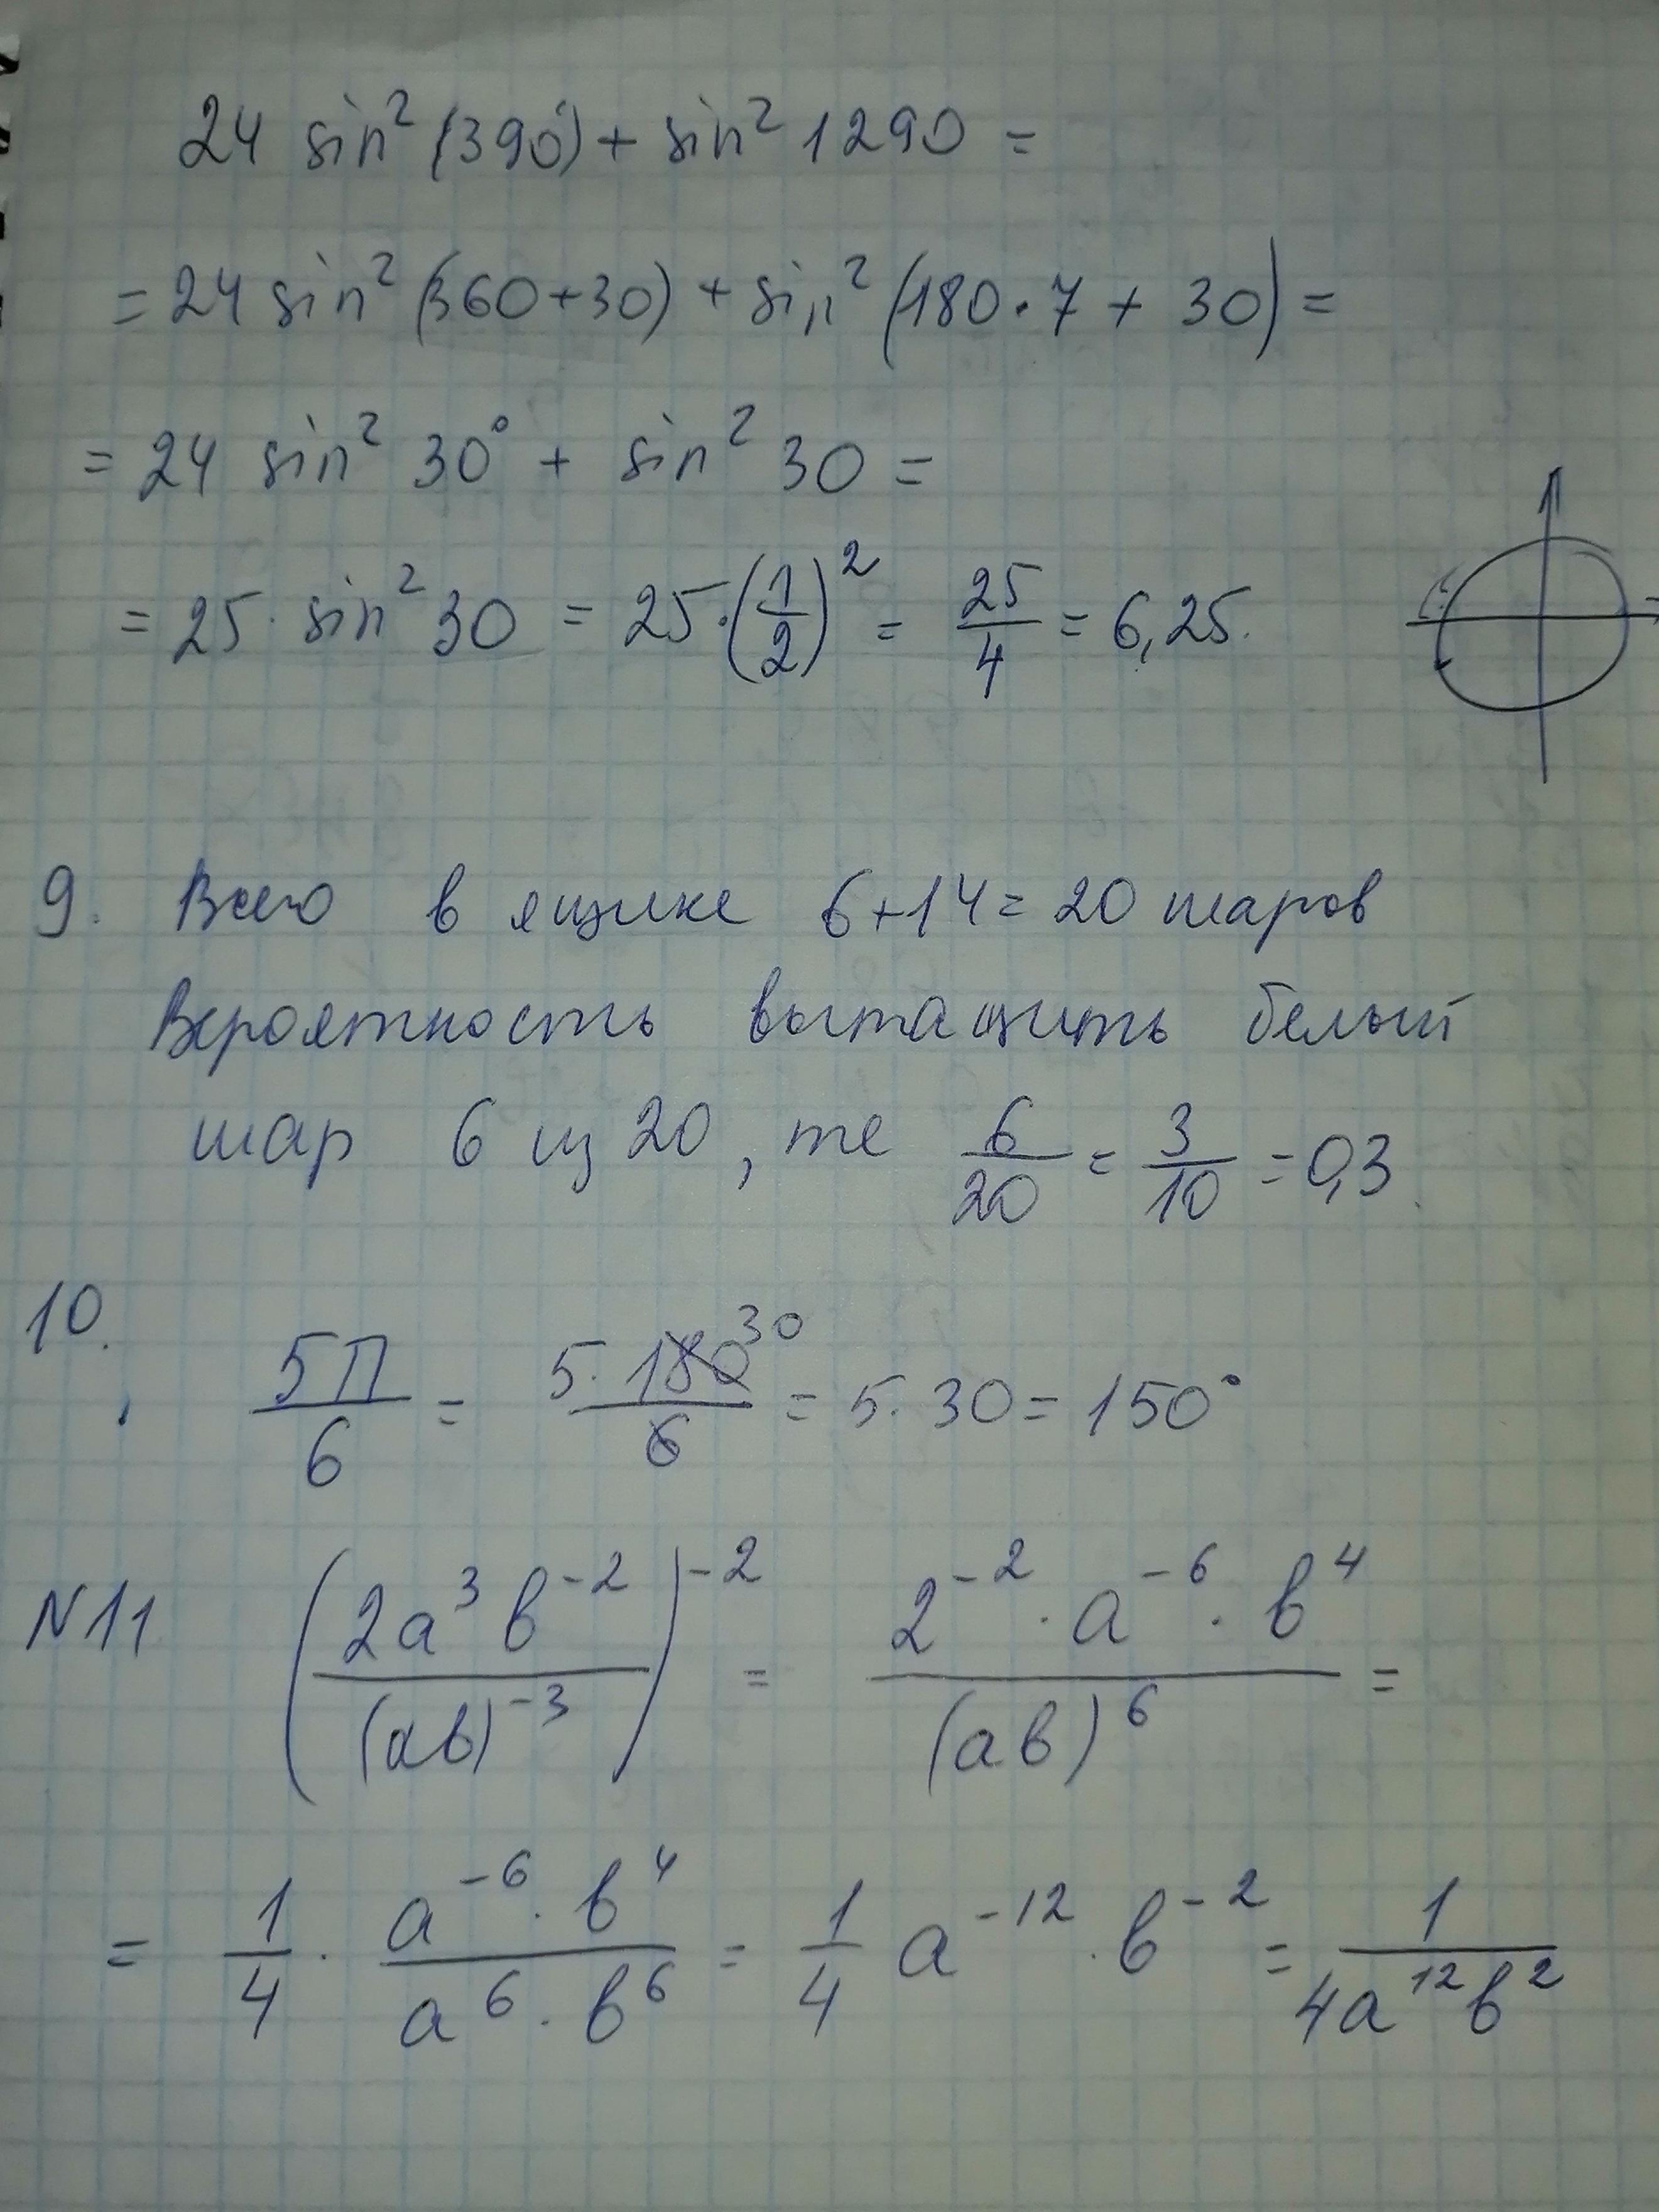 24 sin² (390°) + sin² 1290 =
= 24 sin² (360+30) + sin² (180·7 + 30) =
= 24 sin² 30° + sin² 30 =
= 25 · sin² 30 = 25·(1/2)² = 25/4 = 6,25.
9. Всего в ящике 6+14=20 шаров
Вероятность вытащить белый
шар 6 из 20, те 6/20 = 3/10 = 0,3.
10.
5П/6 = 5·180/6 30 = 5·30 = 150°
N11 (2a³b⁻²/(ab)⁻³)⁻² = 2⁻²·a⁻⁶·b⁴/(ab)⁶ =
= 1/4 · a⁻⁶·b⁴/a⁶·b⁶ = 1/4 a⁻¹²·b⁻² = 1/4a¹²b²